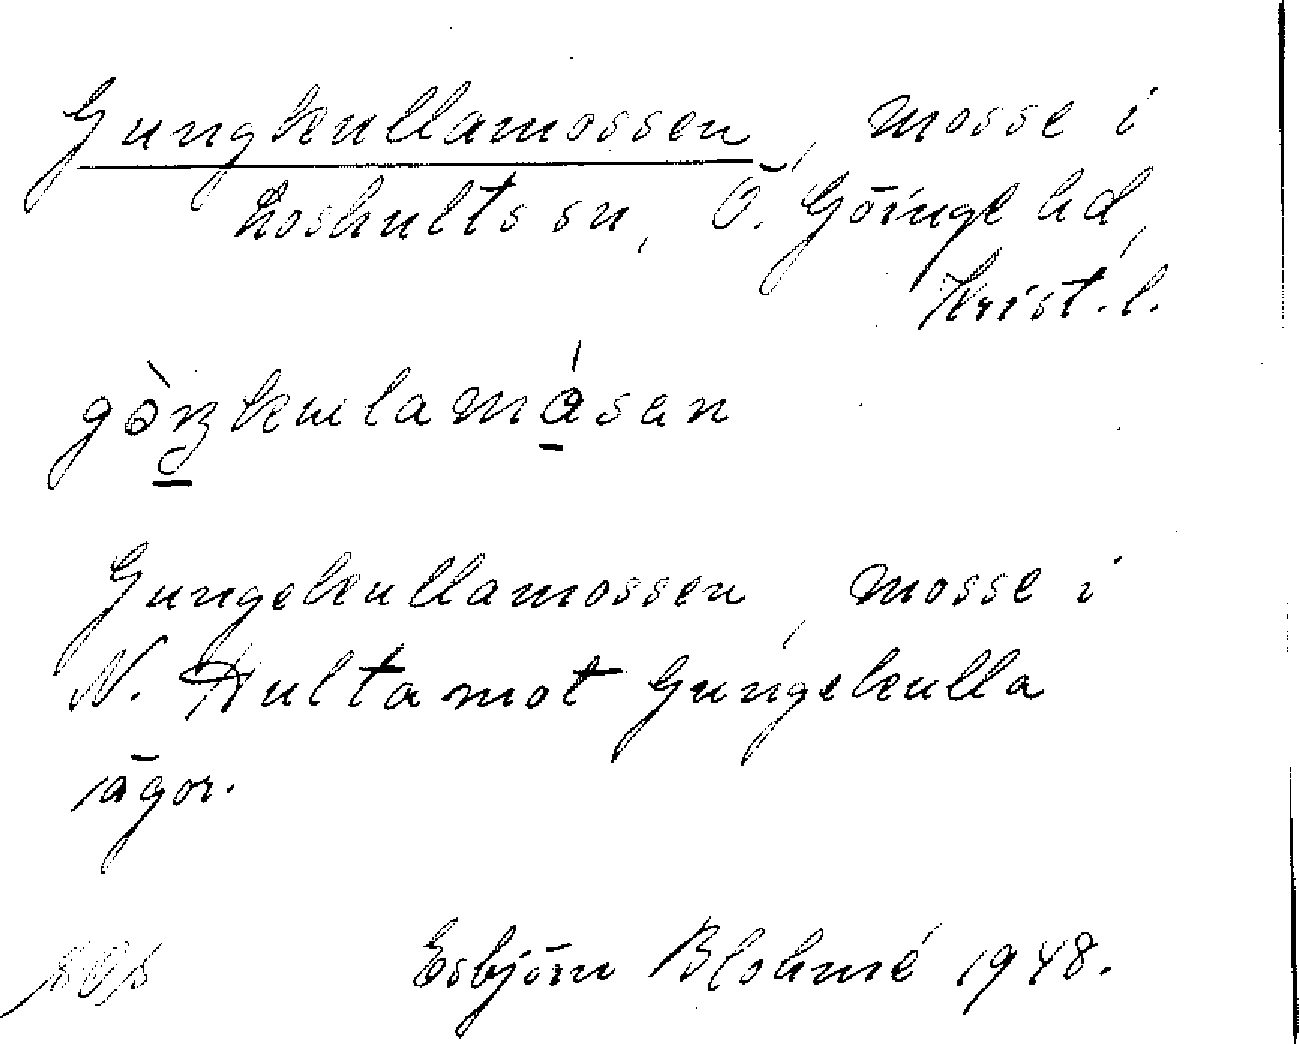 Gungkullamossen, mosse i
Loshults sn, Ö. Göinge hd,
Krist. l.
Gungekullamossen, mosse i
N. Hulta mot Gungekulla
ägor.
Esbjörn Blohmé 1948.